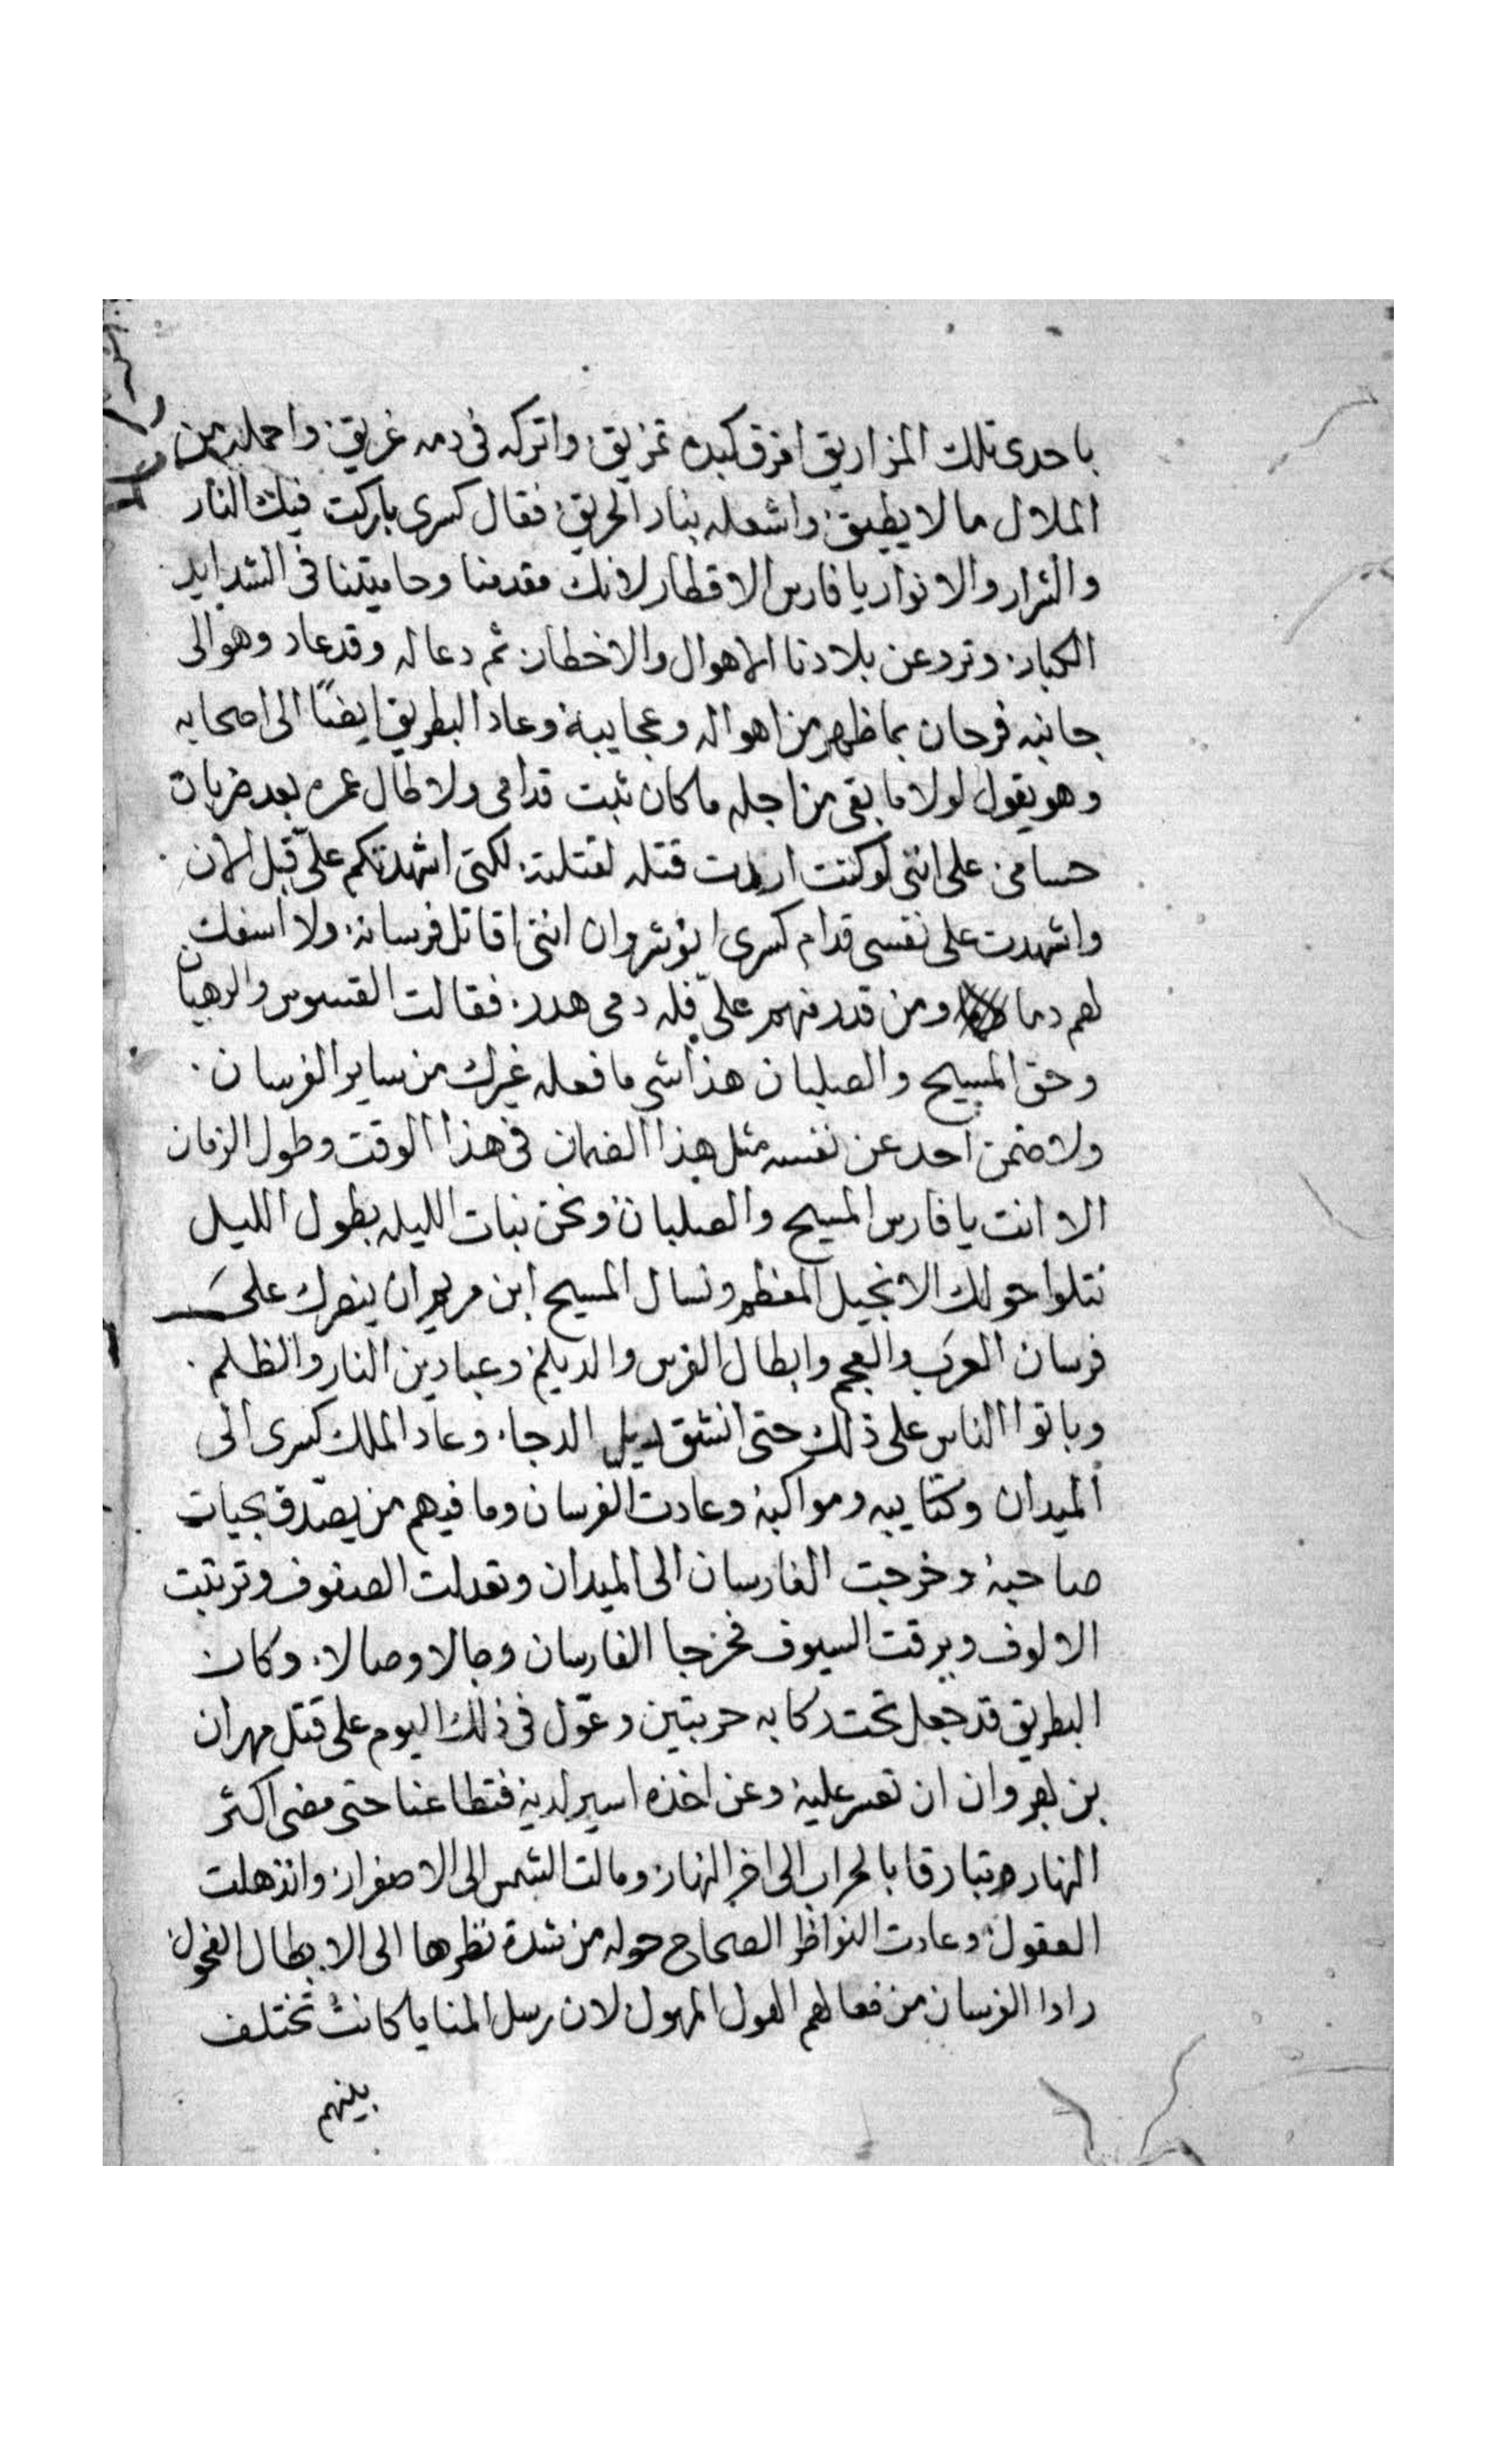 باحدى تلك المزاريق افرق كبده تمزيق واتركه فى دمه غريق واحمله من
الملال مالا يطيق واشعله بنار الحريق فقال كسرى باركت فيك النار
والشرار والانوار يا فارس الاقطار لانك مقدمنا وحاميتنا فى الشدايد
الكبار وترد عن بلادنا الاهوال والاخطار ثم دعا له وقد عاد وهو الى
جانبه فرحان بما ظهر من اهواله وعجايبه وعاد البطريق ايضًا الى اصحابه
وهو يقول لولا ما بقى من اجله ما كان ثبت قدامى ولا طال عمره بعد ضربات
حسامى على اننى لو كنت اردت قتله لقتلته لكنى اشهدتكم علىّ قبل الان
واشهدت على نفسى قدام كسرى انوشروان اننى اقاتل فرسانه ولا اسفك
لهم دما ومن قدر منهم علىّ فله دمى هدر فقالت القسوس والرهبان
وحق المسيح والصلبان هذا شى ما فعله غيرك من ساير الفرسان
ولا ضمن احد عن نفسه مثل هذا الضمان فى هذا الوقت وطول الزمان
الا انت يا فارس المسيح والصلبان ونحن نبات الليله بطول الليل
نتلوا حولك الانجيل المعظم ونسال المسيح ابن مريم ان ينصرك على
فرسان العرب والعجم وابطال الفرس والديلم وعبادين النار والظلم
وباتوا الناس على ذلك حتى انشق ديل الدجا وعاد الملك كسرى الى
الميدان وكتايبه ومواكبه وعادت الفرسان وما فيهم من يصدّق بحيات
صاحبه وخرجت الفارسان الى الميدان وتعدلت الصفوف وترتبت
الالوف وبرقت السيوف فخرجا الفارسان وجالا وصالا وكان
البطريق قد جعل تحت ركابه حربتين وعوّل فى ذلك اليوم على قتل مهران
بن بهروان ان تعسر عليه وعن اخذه اسير لديه فتطاعنا حتى مضى اكثر
النهار وتبارقا بالحراب الى اخر النهار ومالت الشمس الى الاصفرار وانذهلت
العقول وعادت النواظر الصحاح حوله من شدة نظرها الى الابطال الفحول
راوا الفرسان من فعالهم الهول المهول لان رسل المنايا كانت تختلف
بينهم